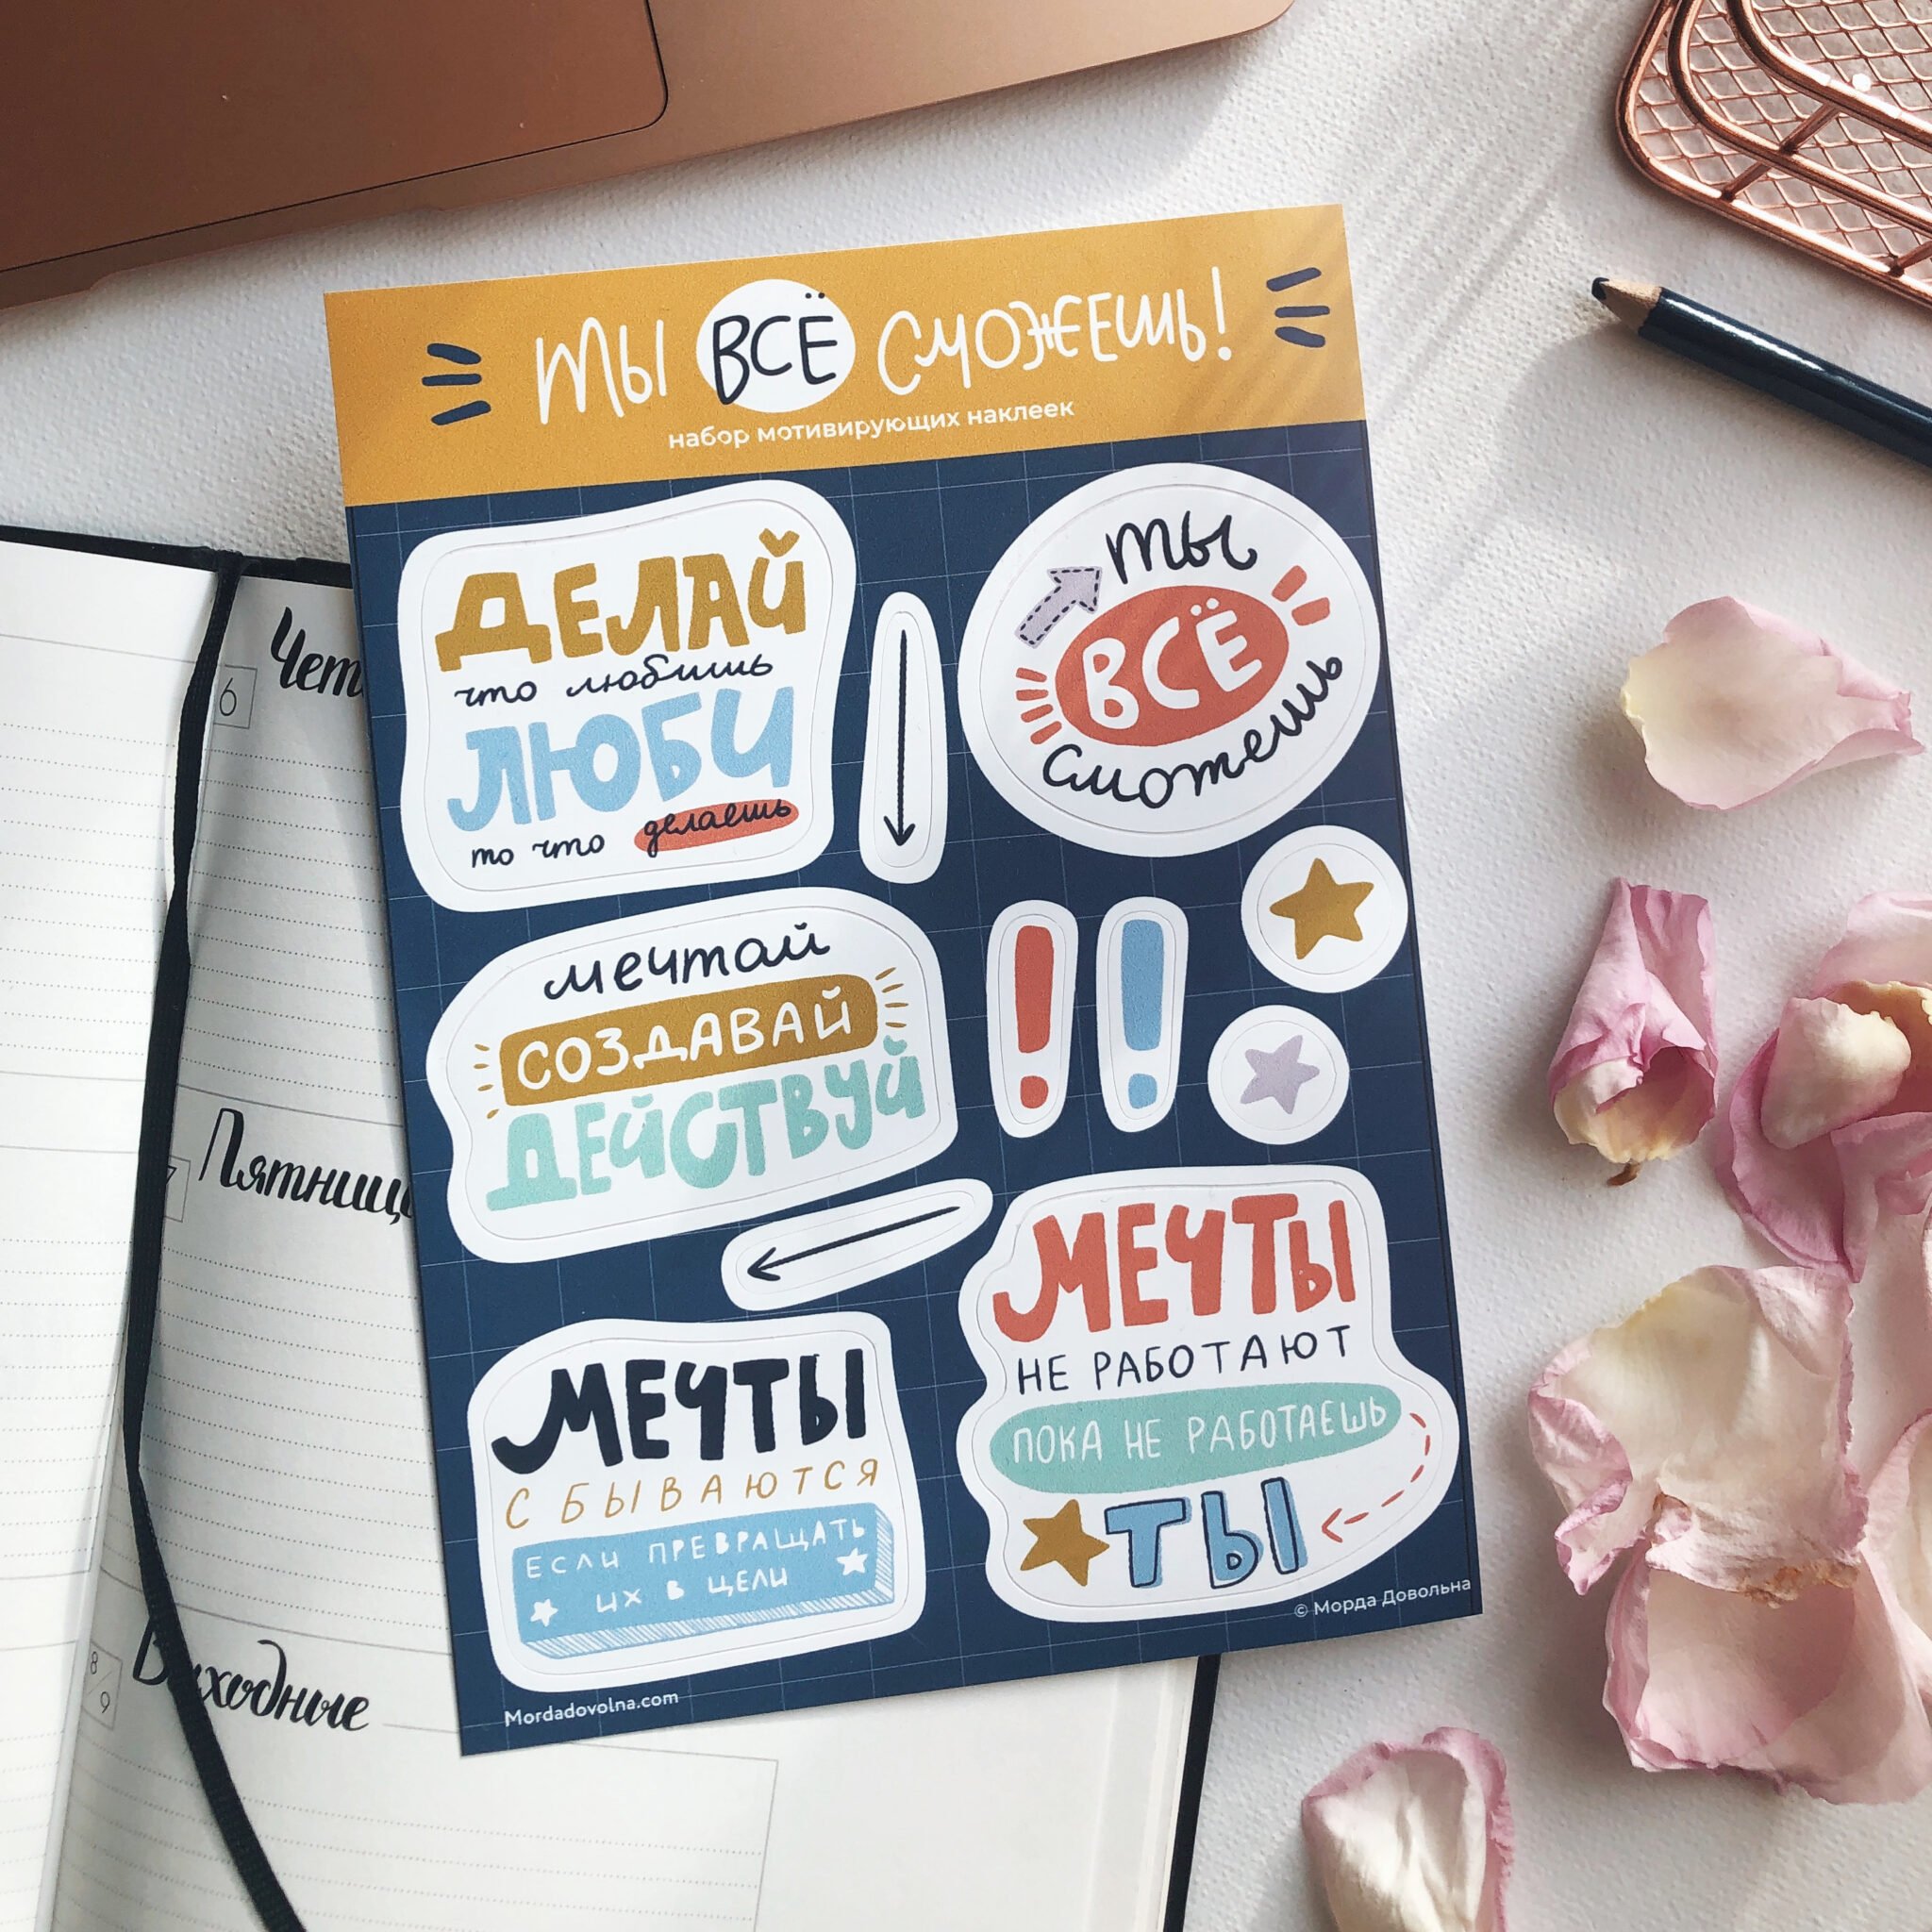 ТЫ ВСЁ СМОЖЕШЬ!
набор мотивирующих наклеек
ДЕЛАЙ
что любишь
ЛЮБИ
то что делаешь
ты
ВСЁ
сможешь
мечтай
СОЗДАВАЙ
ДЕЙСТВУЙ
МЕЧТЫ
СБЫВАЮТСЯ
ЕСЛИ ПРЕВРАЩАТЬ
ИХ В ЦЕЛИ
МЕЧТЫ
НЕ РАБОТАЮТ
ПОКА НЕ РАБОТАЕШЬ
ТЫ
© Морда Довольна
Mordadovolna.com
6
Чет
7
Пятниц
8/9
Выходные